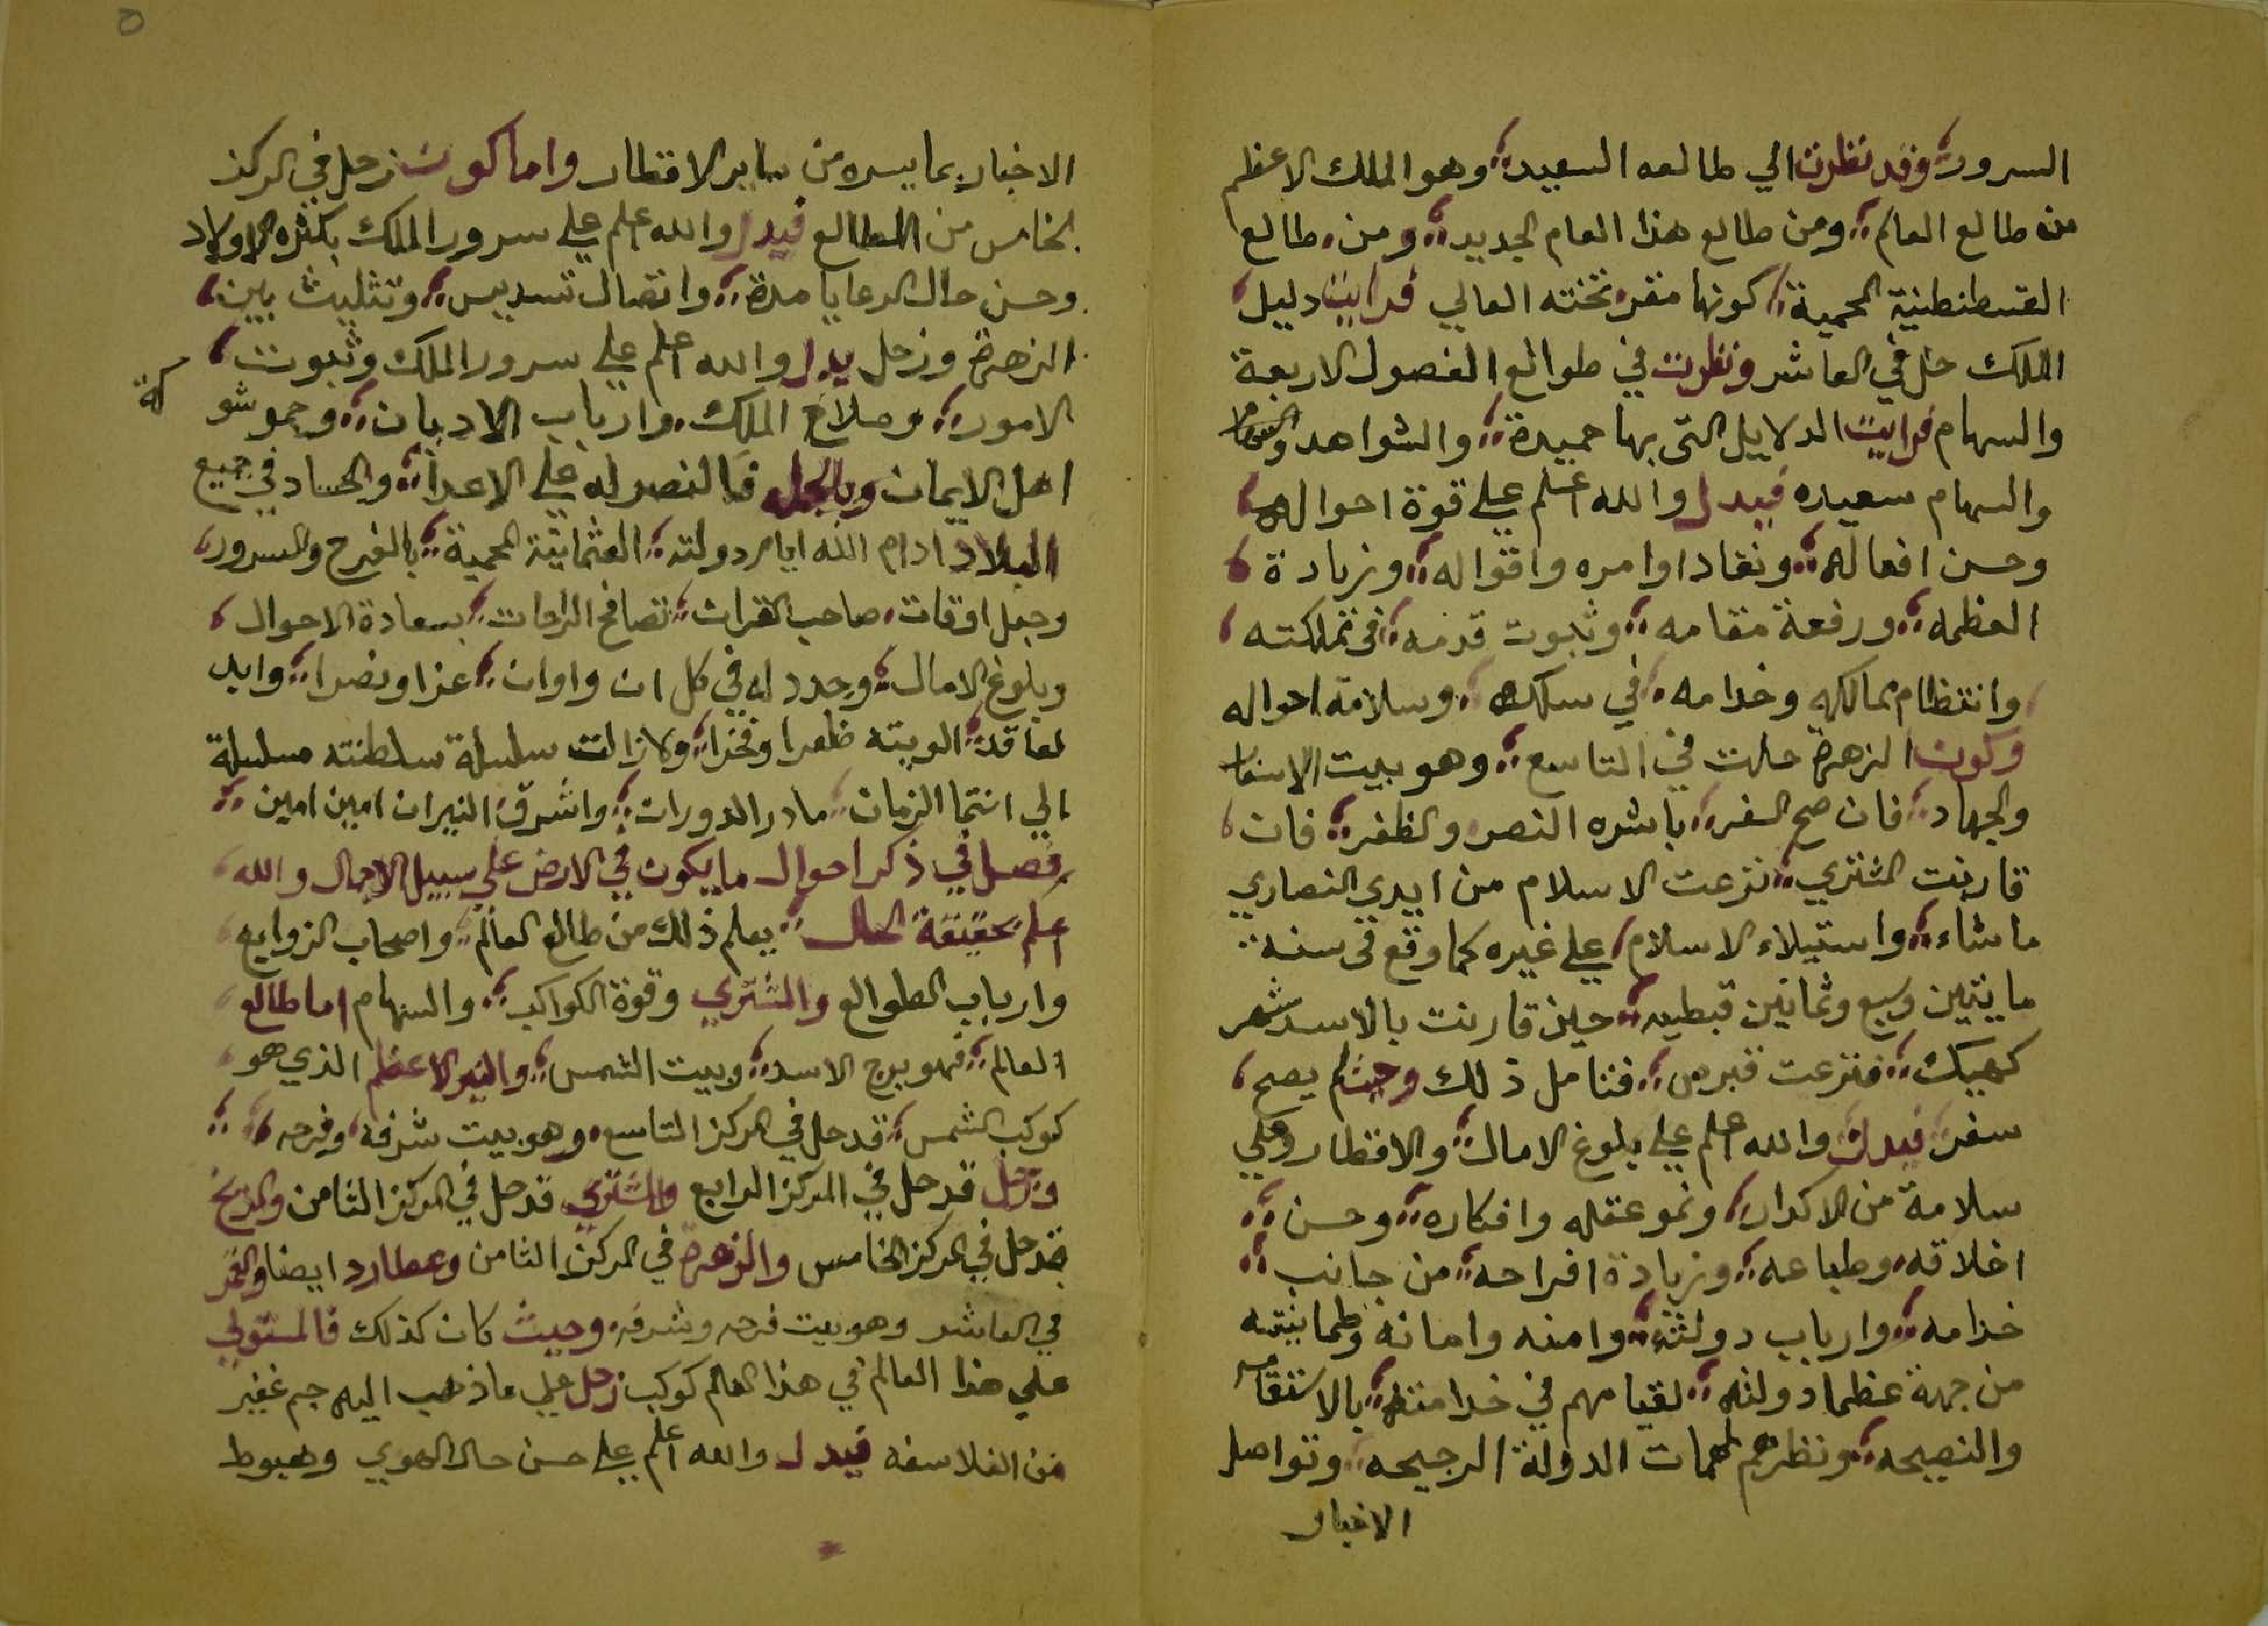 السرور وقد نظرت الي طالعه السعيد وهو الملك الاعظم
من طالع العالم ومن طالع هذا العام الجديد ومن طالع
القسطنطنية المحمية كونها مقر تخته العالي فرايت دليل
الملك حل في العاشر ونظرت في طوالع الفصول الاربعة
والسهام فرايت الدلايل التي بها حميدة والشواهد
والسهام سعيده فيدل والله اعلم علي قوة احواله
وحسن افعاله ونفاد اوامره واقواله وزيادة
العظمه ورفعة مقامه وثبوت قدمه في تملكته
وانتظام ممالكه وخدامه في سلكه وسلامة احواله
وكون الزهرة حلت في التاسع وهو بيت الاسفار
والجهاد فان صح السفر باشره النصر والظفر فان
قارنت المشتري نزعت الاسلام من ايدي النصاري
ماشاء واستيلاء الاسلام علي غيره كما وقع في سنة
مايتين وسبع وثمانين قبطيه حين قارنت بالاسد شهر
كهيك فنزعت قبرص فتامل ذلك وحيث لم يصح
سفر فيدل والله اعلم علي بلوغ الامال والاقطار وعلي
سلامة من الاكدار ونمو عقله وافكاره وحسن
اخلاقه وطباعه وزيادة افراحه من جانب
خدامه وارباب دولته وامنه وامانه وطمانيته
من جهة عظما دولته لقيامهم في خدامته بالاستقامه
والنصيحه ونظرهم لمهمات الدولة الرجيحه وتواصل
الاخبار
الاخبار بما يسره من ساير الاقطار واما كون زحل في المركز
الخامس من الطالع فيدل والله اعلم علي سرور الملك بكثره الاولاد
وحسن حال الرعايا مدة واتصال تسديس وتثليث بين
الزهرة وزحل يدل والله اعلم علي سرور الملك وثبوت
الامور وصلاح الملك وارباب الاديان وجمو شو كة
اهل الايمان وبالجمله فالنصر له علي الاعدا والحساد في جميع
البلاد ادام الله ايام دولته العثمانية المحمية بالفرح والسرور
وجعل اوقات صاحب القران تصافح الراحات بسعادة الاحوال
وبلوغ الامال وجدد له في كل ان واوان عزا ونصرا وايد
لعاقد الويته ظفرا وفخرا ولازالت سلسلة سلطنته مسلسلة
الي انتها الزمان مادر الدوران واشرق النيران امين امين
فصل في ذكر احوال ما يكون في الارض علي سبيل الاجمال والله
اعلم بحقيقة الحال يعلم ذلك من طالع العالم واصحاب الزوايع
وارباب الطوالع والمشتري وقوة الكواكب والسهام اما طالع
العالم فهو برج الاسد وبيت الشمس والنير الاعظم الذي هو
كوكب الشمس قد حل في المركز التاسع وهو بيت شرفه وفرحه
وزحل قد حل في المركز الرابع والمشتري قد حل في المركز الثامن والمريخ
قد حل في المركز الخامس والزهرة في المركز الثامن وعطارد ايضا والقمر
في العاشر وهو بيت فرحه وشرفه وحيث كان كذلك فالمستولي
علي هذا العالم في هذا العام كوكب زحل علي ما ذهب اليه جم غفير
من الفلاسفه فيدل والله اعلم علي حسن حال الهوي وهبوط